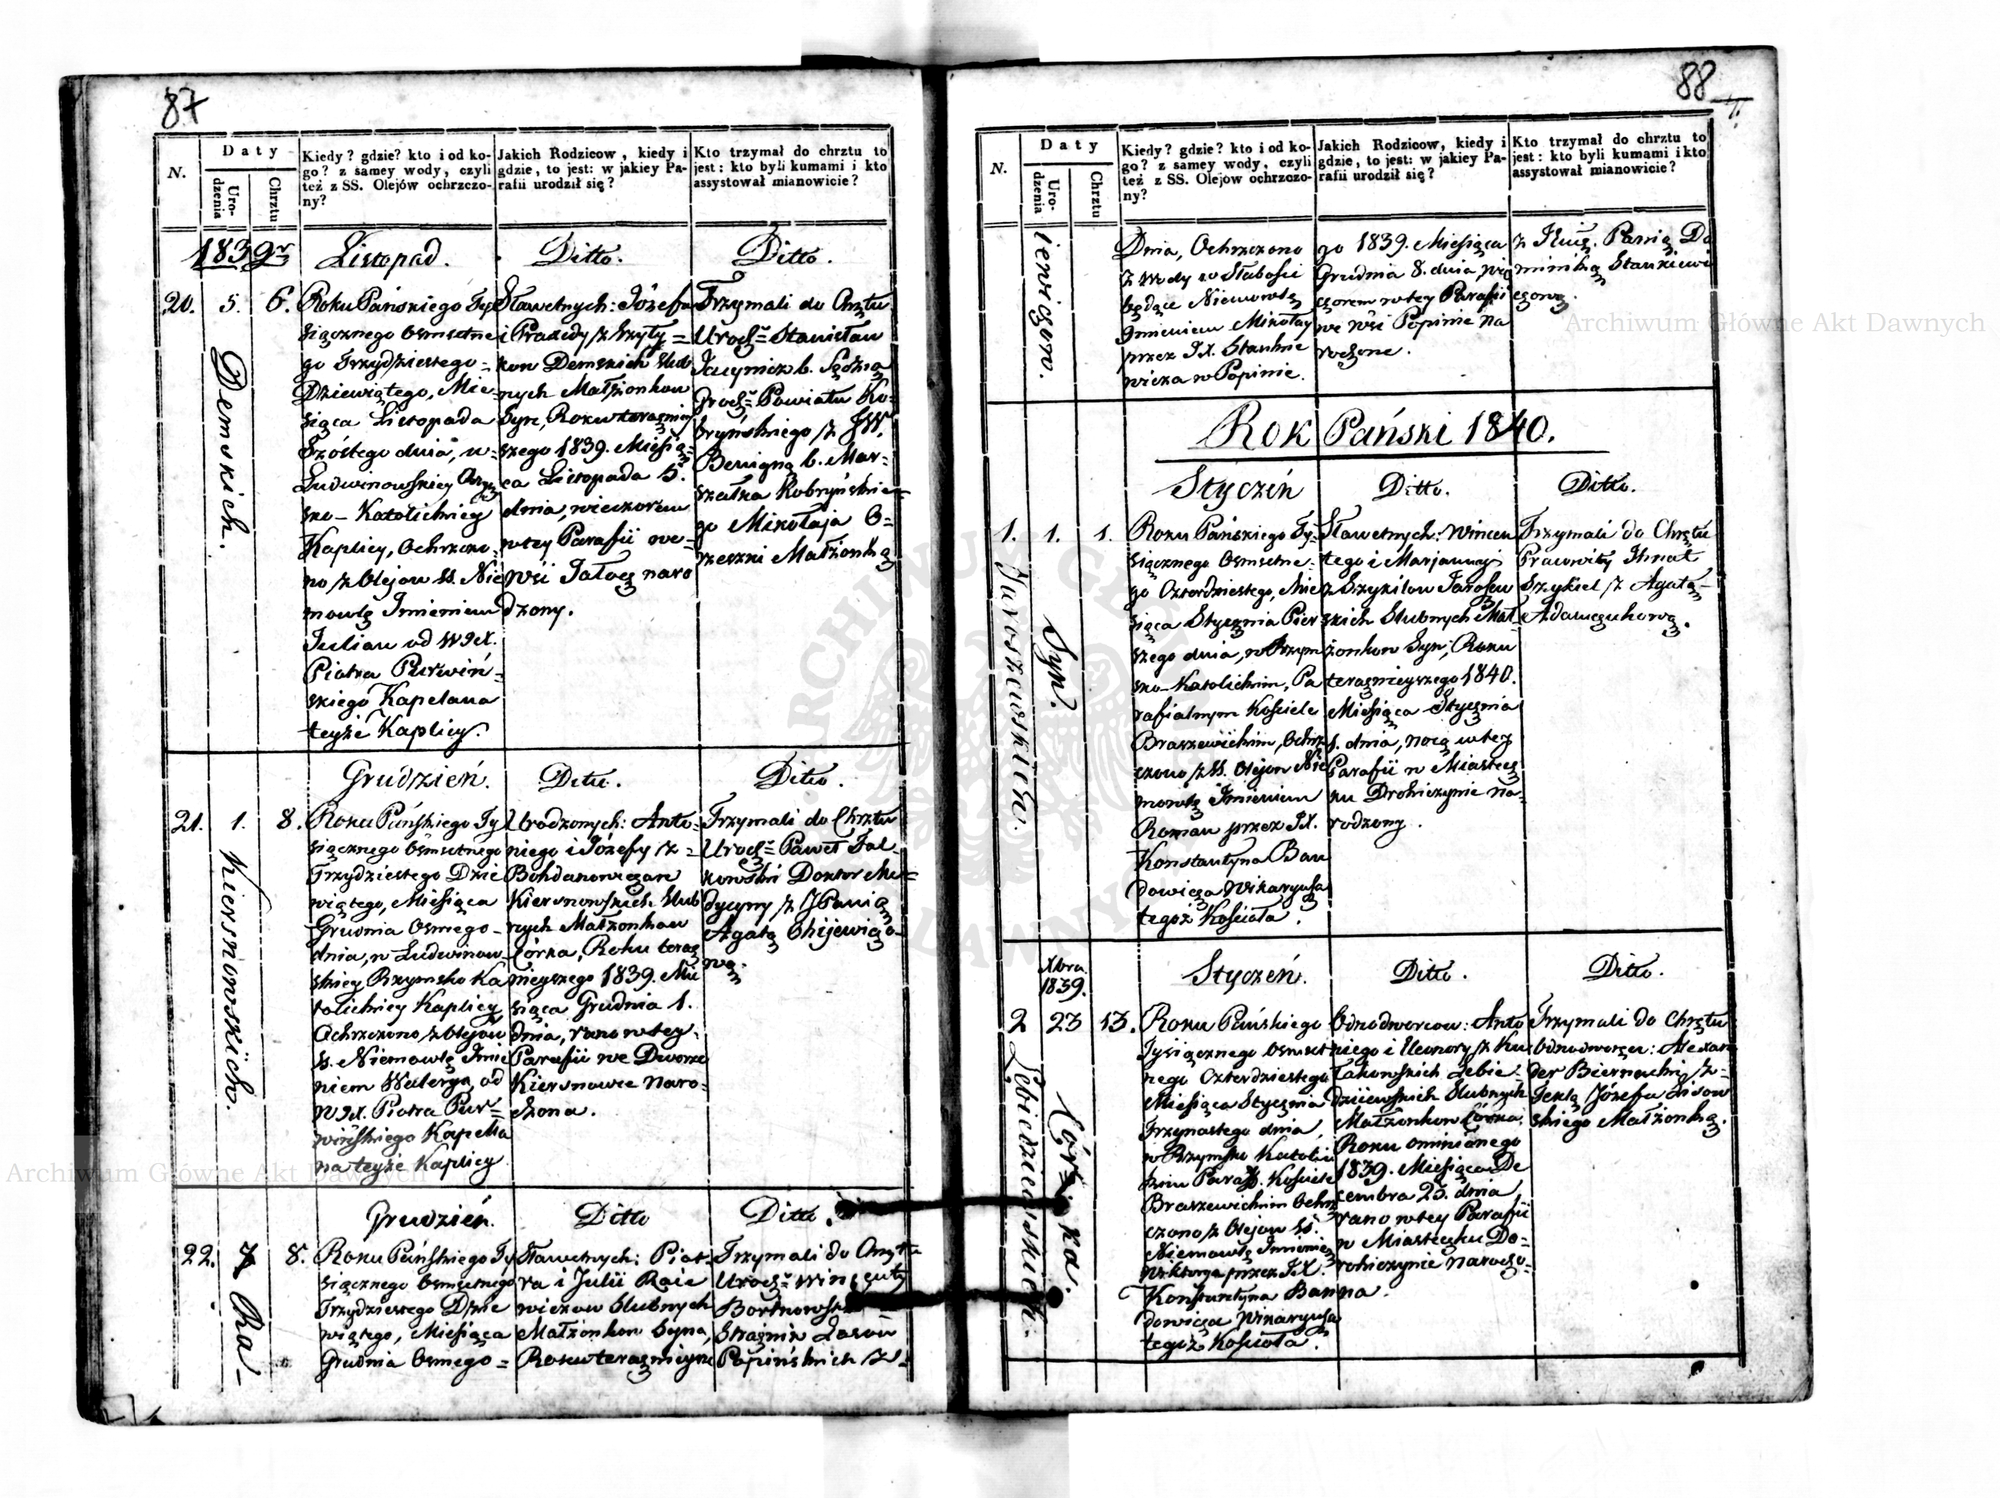 87
N.
Daty
Urodzenia
Chrztu
Kiedy? gdzie? kto i od ko-
go? z samey wody, czyli
też z SS. Olejów ochrzczo-
ny?
Jakich Rodzicow, kiedy i
gdzie, to jest: w jakiey Pa-
rafii urodził się?
Kto trzymał do chrztu to
jest: kto byli kumami i kto
assystował mianowicie?
1839 r
Listopad.
Ditto.
Ditto.
20.
5.
6.
Demskich.
Roku Pańskiego Tys
siącznego Osmsetne
go Trzydziestego =
Dziewiątego, Mie=
siąca Listopada
Szóstego dnia, w=
Ludwinowskiey Rzym
sko-Katolickiey
Kaplicy, Ochrzczo-
no z Olejow SS. Nie
mowlę Imieniem
Julian od WJX.
Piotra Purwiń-
skiego Kapelana
teyże Kaplicy.
Sławetnych: Józefa
i Praxedy z Szyty=
kow Demskich Slub
nych Małżonkow
Syn, Roku teraźniey
szego 1839. Miesią=
ca Listopada 5.
dnia, wieczorem
w tey Parafii we=
Wsi naro
dzony.
Trzymali do Chrztu
Urodz. Stanisław
b. Sędzia
Grodz. Powiatu Ko-
bryńskiego z JW.
Benigną b. Mar=
szałka Kobryńskie=
go Mikołaja O=
rzeszki Małżonką
Grudzień.
Ditto.
Ditto.
21.
1.
8.
Kiersnowskich.
Roku Pańskiego Ty
siącznego Osmsetnego
Trzydziestego Dzie
wiątego, Miesiąca
Grudnia Osmego-
dnia, w Ludwinow
skiey Rzymsko Ka
tolickiey Kaplicy
Ochrzczono z Olejow
SS. Niemowlę Imie
niem Waleryą, od
WJX. Piotra Pur=
wińskiego Kapella
na teyże Kaplicy
Urodzonych: Anto-
niego i Józefy z =
Bohdanowiczow
Kiersnowskich Slub
nych Małżonkow
Córka, Roku teraź
nieyszego 1839. Mie
siąca Grudnia 1.
dnia, rano w tey
Parafii we Dworze
Kiersnowie naro-
dzona.
Trzymali do Chrztu
Urodz. Paweł Fal-
kowski Doktor Me=
dycyny z JPanią
Agatą
wą.
Grudzień.
Ditto
Ditto.
22.
7
8.
Ra-
Roku Pańskiego Ty
siącznego Osmsetnego
Trzydziestego Dzie
wiątego, Miesiąca
Grudnia Osmego=
Sławetnych: Piot-
ra i Julii Raie
wiczow Slubnych
Małżonkow Syna,
Roku teraźnieysze
Trzymali do Chrztu
Urodz. Wincenty
Bortnowski
Strażnik Lasow
Popińskich z=
88
N.
Daty
Urodzenia
Chrztu
Kiedy? gdzie? kto i od ko-
go? z samey wody, czyli
też z SS. Olejów ochrzczo-
ny?
Jakich Rodzicow, kiedy i
gdzie, to jest: w jakiey Pa-
rafii urodził się?
Kto trzymał do chrztu to
jest: kto byli kumami i kto
assystował mianowicie?
iewiczow.
Dnia, Ochrzczono
z wody w słabości
będące Niemowlę
Imieniem Mikołay
przez JX. Stankie
wicza w Popinie.
go 1839. Miesiąca
Grudnia 8. dnia, wie
czorem w tey Parafii
we wsi Popinie na
rodzone.
z Panią Do
miniką Stankiewi
czową.
Rok Pański 1840.
Styczeń
Ditto.
Ditto.
1.
1.
1.
Jaroszewskich.
Syn.
Roku Pańskiego Ty-
siącznego Osmsetne-
go Czterdziestego, Mie
siąca Stycznia Pier
wszego dnia, w Rzym
sko-Katolickim, Pa
rafialnym Kościele
Braszewickim, Ochrz
czono z SS. Olejow Nie
mowlę Imieniem
Roman przez JX.
Konstantyna Ban
dowicza Wikaryusza
tegoż Kościoła.
Sławetnych: Wincen
tego i Maryanny
z Szyzilow Jaroszew
skich Slubnych Mał-
żonkow Syn, Roku
teraźnieyszego 1840.
Miesiąca Stycznia
1. dnia, nocą w tey
Parafii w Miastecz
ku Drohiczynie na-
rodzony.
Trzymali do Chrztu
Pracowity Ihnat
Szykiel z Agatą
Adamczukową.
Xbra
1839.
Styczeń.
Ditto.
Ditto.
2
23
13.
Lebiedziewskich.
Córka.
Roku Pańskiego
Tysiącznego Osmset
nego Czterdziestego
Miesiąca Stycznia
Trzynastego dnia,
w Rzymsko Katolic
kim Paraff. Kościele
Braszewickim Ochrz
czono z Olejow SS.
Niemowlę Imieniem
Wiktorya przez JX.
Konstantyna Ban
dowicza Wikaryusza
tegoż Kościoła.
Odnodworcow: Anto
niego i Eleonory z Ku
łakowskich Lebie-
dziewskich Slubnych
Małżonkow Córka,
Roku ominionego
1839. Miesiąca De
cembra 23. dnia
rano w tey Parafii
w Miasteczku Do=
rohiczynie narodzo-
na.
Trzymali do Chrztu
Odnodworzec: Alexan
der Biernacki, z-
Teklą Józefa Lisow
skiego Małżonką.
Archiwum Główne Akt Dawnych
Archiwum Główne Akt Dawnych
ARCHIWUM GŁÓWNE AKT DAWNYCH